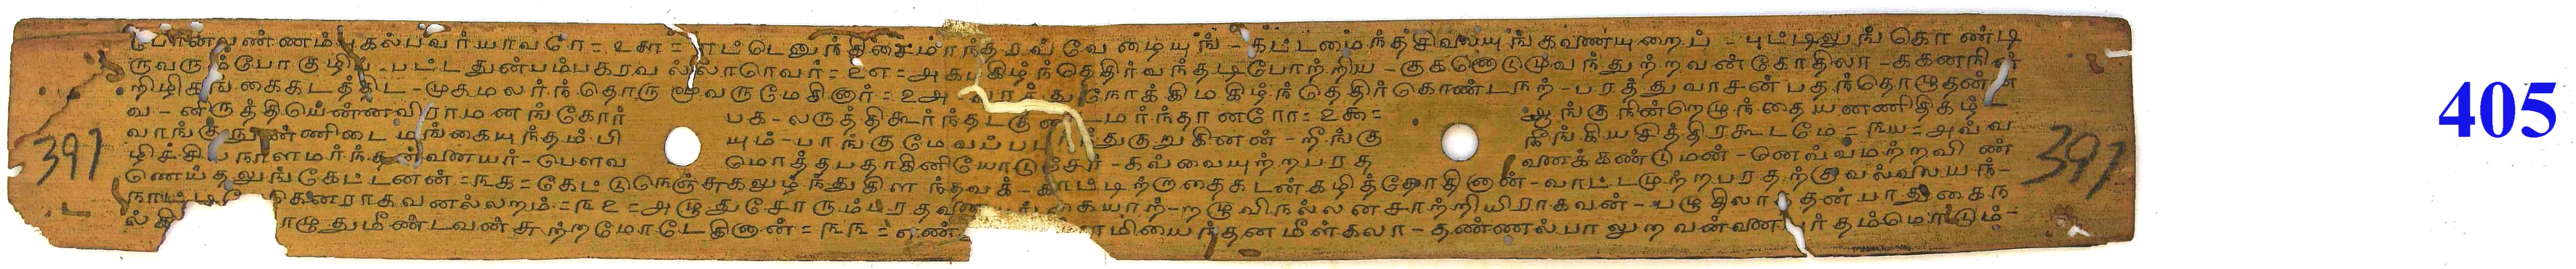 போனவண்ணம் புகல்பவர்யாவரோ = உசா = ாட்டெனுந்திரைமாந்தரவ வேடையுங் - கட்டமைந்தசிலையுங்கவணயுறைப் - புட்டிலுங்கொண்டி
ருவரும்போகுழிப - பட்டதுன்பம்பகரவல்லாரெவர் = உஎ = அகமகிழ்ந்தெதிர்வந்தடிபோற்றிய - குகனொடுமுவந்துற்றவன்கோதிலா - ககனநின்
றிழிகங்கைகடத்திட - முகமலர்ந்தொரு மூவருமேகினார் = உஅ நோக்கிமகிழ்ந்தெதிர்கொண்டநற் - பரத்துவாசன்பதந்தொழுதன்ன
வ - னருத்தியெண்ணவிராமனங்கோர் பக - லருத்திகூர்ந்தட மர்ந்தானரோ = உ௯ = ஆங்குநின்றெழுந்தையனணிதிகழ்
வாங்கு நுண்ணிடை மங்கையுந்தம்பி யும் - பாங்குமேவப்ப துகுறுகினன் - றீங்கு நீங்கியசித்திரகூடமே = ௩ய = அவ்வ
ழிச்சில நாளமர்ந்தன்வணயர் - பௌவ மொத்தபதாகினியோடுசேர் - கவ்வையுற்றபரத வணக்கண்டுமண் - ணெவ்வமற்றவி ண்
ணெய்தலுங்கேட்டனன் = ௩க = கேட்டுநெஞ்சுகலுழ்ந்துகிள ந்தவக் - காட்டிற்றாதைகடன்கழித்தோதினான் - வாட்டமுற்றபரதற்குவல்வலயந் -
நாட்டி கெனராகவனல்லறம் = ௩உ = அழுதுசோரும்பரதவண கையாற் - றழுவிநல்லனசாற்றியிராகவன் - பழுதிலா தன்பாதுகைந
ல்கி ாழுதுமீண்டவன்சுற்றமோடேகினான் = ௩௩ = எண் ாமியைந்தனமீள்கலா - தண்ணல்பாலுறவன்வண ர்தம்மொடும் -
391
391
405